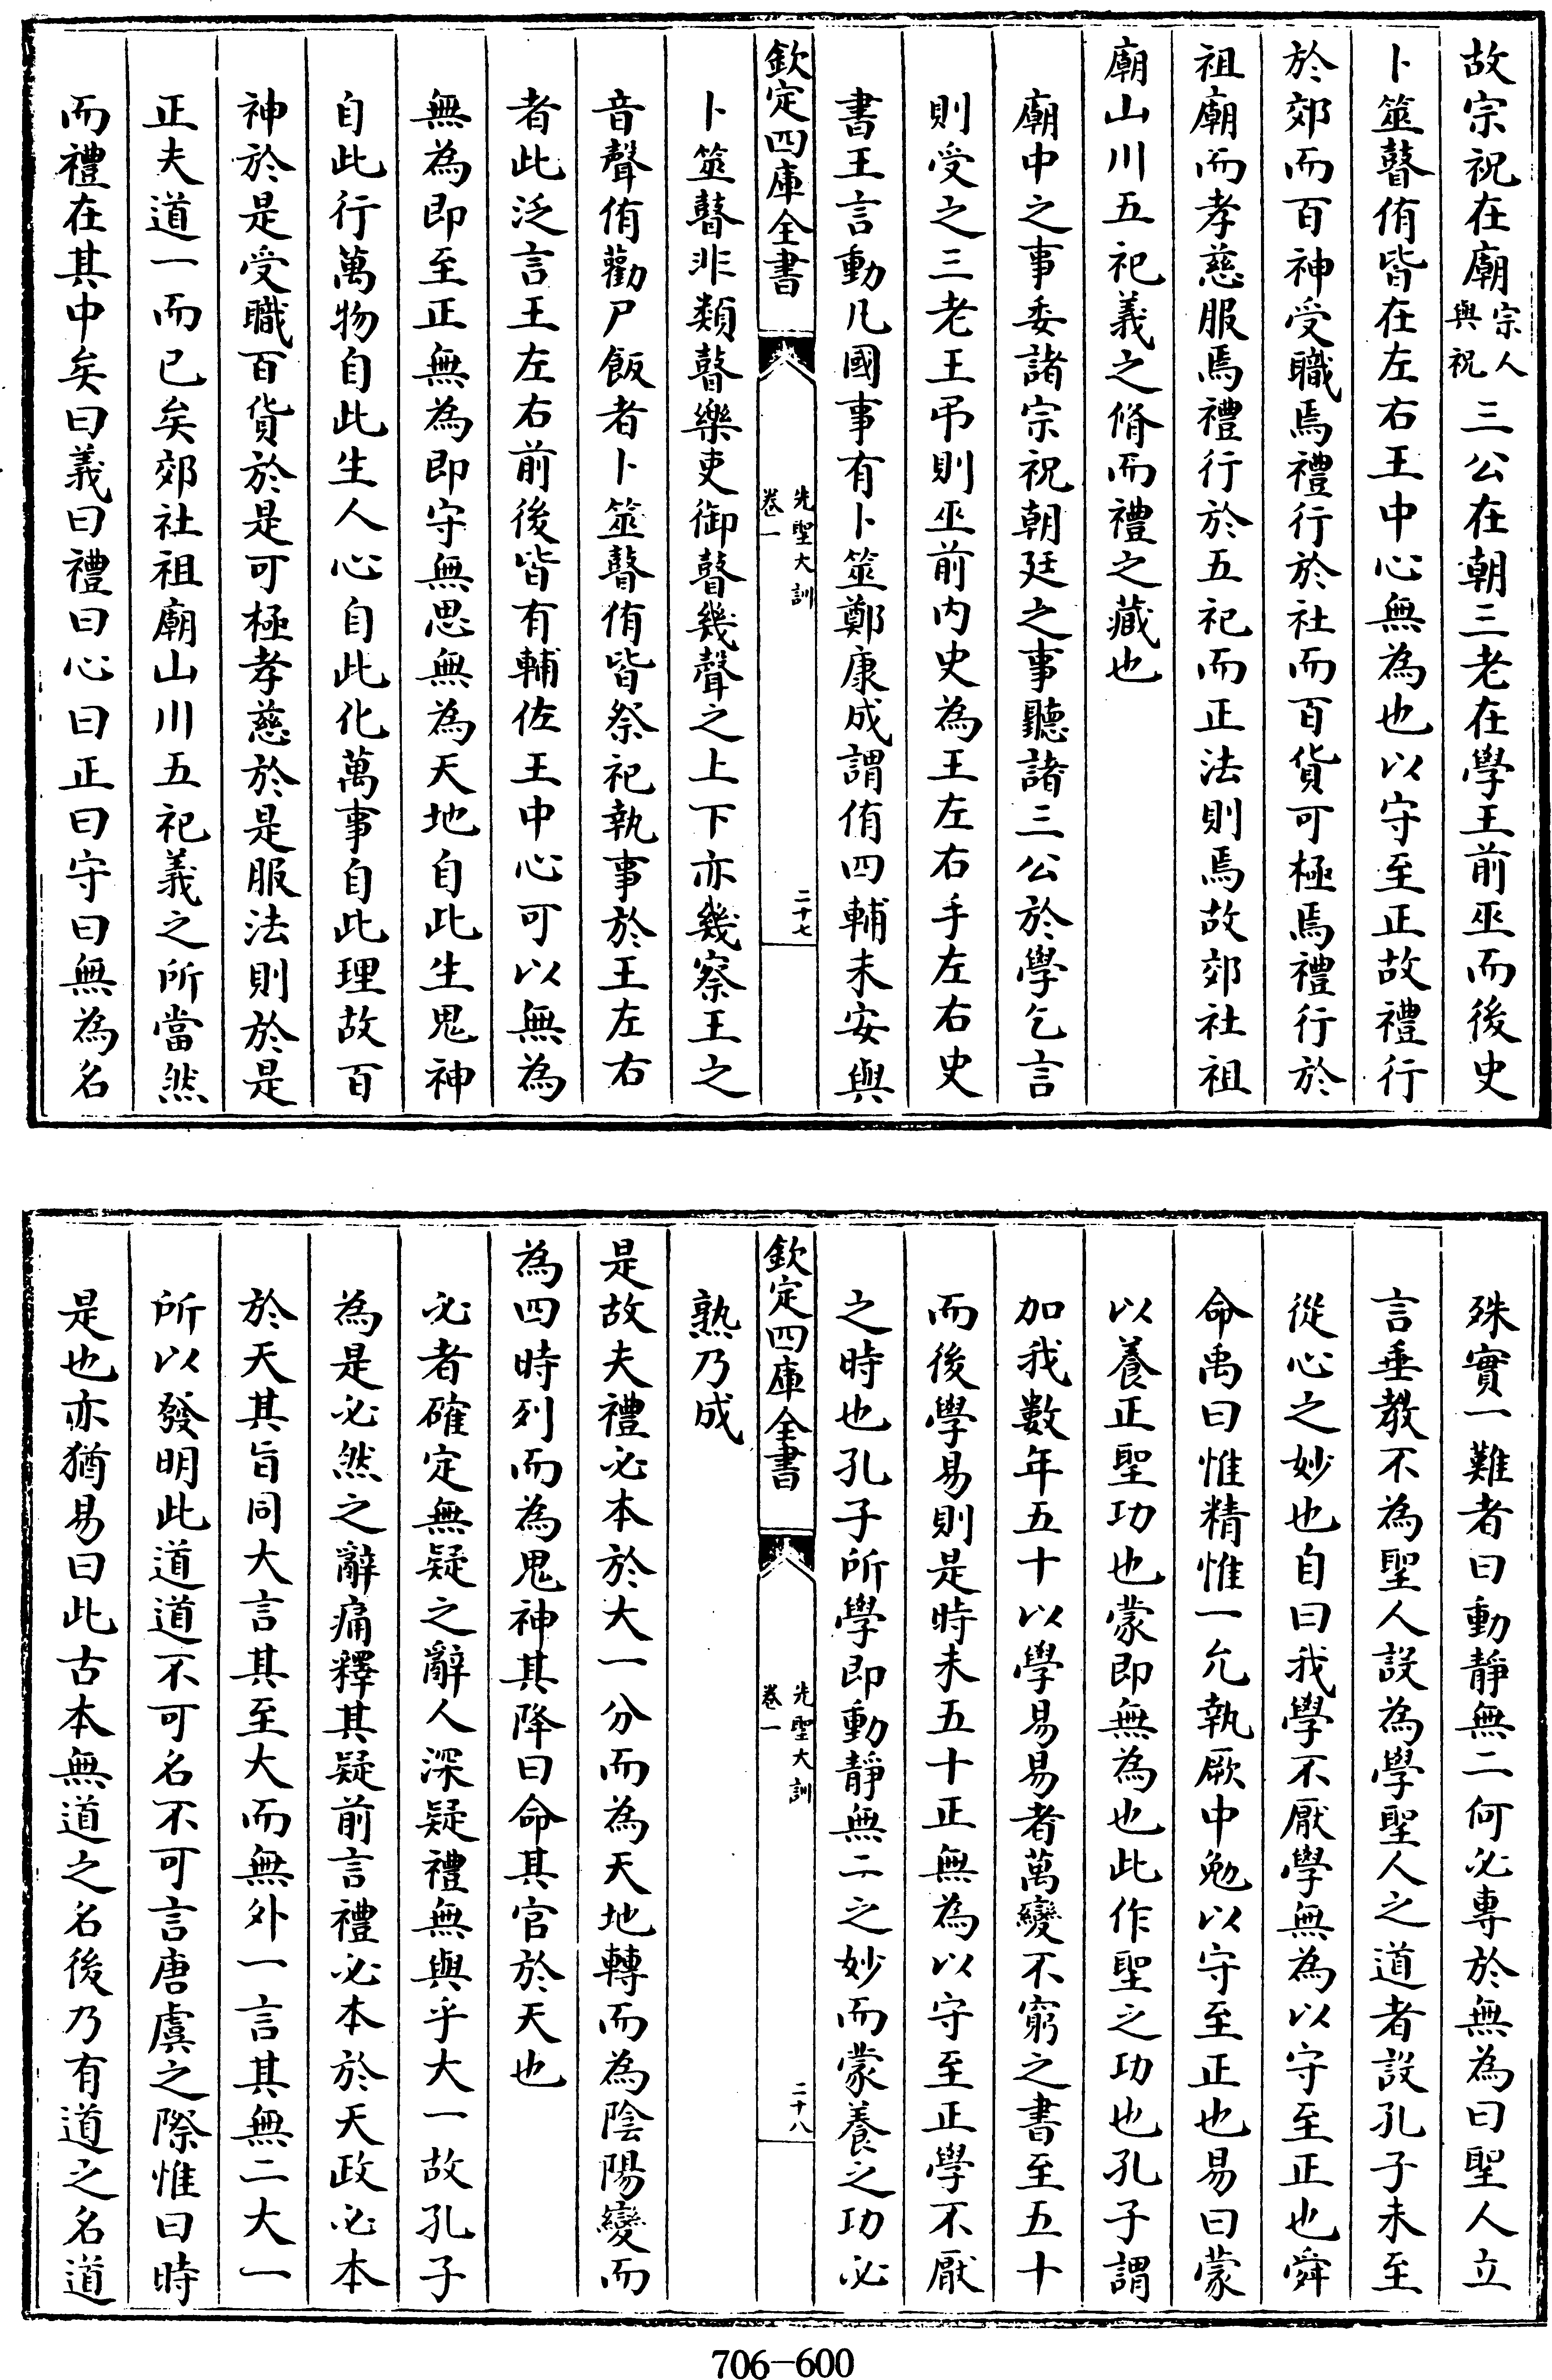 故宗祝在廟宗人與祝三公在朝三老在學王前巫而後史
卜筮瞽侑皆在左右王中心無為也以守至正故禮行
於郊而百神受職焉禮行於社而百貨可極焉禮行於
祖廟而孝慈服焉禮行於五祀而正法則焉故郊社祖
廟山川五祀義之脩而禮之藏也
廟中之事委諸宗祝朝廷之事聽諸三公於學乞言
則受之三老王弔則巫前內史為王左右手左右史
書王言動凡國事有卜筮鄭康成謂侑四輔未安與
欽定四庫全書
先聖大訓
卷一
二十七
卜筮瞽非類瞽樂吏御瞽幾聲之上下亦幾察王之
音聲侑勸尸飯者卜筮瞽侑皆祭祀執事於王左右
者此泛言王左右前後皆有輔佐王中心可以無為
無為即至正無為即守無思無為天地自此生鬼神
自此行萬物自此生人心自此化萬事自此理故百
神於是受職百貨於是可極孝慈於是服法則於是
正夫道一而已矣郊社祖廟山川五祀義之所當然
而禮在其中矣曰義曰禮曰心曰正曰守曰無為名
殊實一難者曰動靜無二何必專於無為曰聖人立
言垂教不為聖人設為學聖人之道者設孔子未至
從心之妙也自曰我學不厭學無為以守至正也舜
命禹曰惟精惟一允執厥中勉以守至正也易曰蒙
以養正聖功也蒙即無為也此作聖之功也孔子謂
加我數年五十以學易易者萬變不窮之書至五十
而後學易則是時未五十正無為以守至正學不厭
之時也孔子所學即動靜無二之妙而蒙養之功必
欽定四庫全書
先聖大訓
卷一
二十八
熟乃成
是故夫禮必本於大一分而為天地轉而為陰陽變而
為四時列而為鬼神其降曰命其官於天也
必者確定無疑之辭人深疑禮無與乎大一故孔子
為是必然之辭痛釋其疑前言禮必本於天政必本
於天其旨同大言其至大而無外一言其無二大一
所以發明此道道不可名不可言唐虞之際惟曰時
是也亦猶易曰此古本無道之名後乃有道之名道
706-600